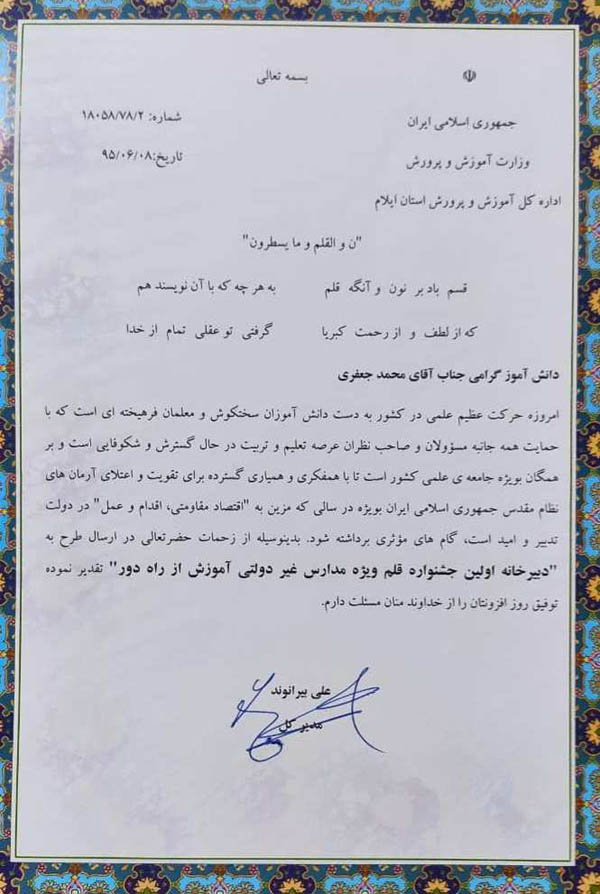 بسمه تعالی
جمهوری اسلامی ایران
شماره: ۱۸۰۵۸/۷۸/۲
وزارت آموزش و پرورش
تاریخ:۹۵/۰۶/۰۸
اداره کل آموزش و پرورش استان ایلام
"ن و القلم و ما یسطرون"
قسم باد بر نون و آنگه قلم به هر چه که با آن نویسند هم
که از لطف و از رحمت کبریا گرفتی تو عقلی تمام از خدا
دانش آموز گرامی جناب آقای محمد جعفری
امروزه حرکت عظیم علمی در کشور به دست دانش آموزان سختکوش و معلمان فرهیخته ای است که با
حمایت همه جانبه مسؤولان و صاحب نظران عرصه تعلیم و تربیت در حال گسترش و شکوفایی است و بر
همگان بویژه جامعه ی علمی کشور است تا با همفکری و همیاری گسترده برای تقویت و اعتلای آرمان های
نظام مقدس جمهوری اسلامی ایران بویژه در سالی که مزین به "اقتصاد مقاومتی، اقدام و عمل" در دولت
تدبیر و امید است، گام های مؤثری برداشته شود. بدینوسیله از زحمات حضرتعالی در ارسال طرح به
"دبیرخانه اولین جشنواره قلم ویژه مدارس غیر دولتی آموزش از راه دور" تقدیر نموده
توفیق روز افزونتان را از خداوند منان مسئلت دارم.
علی بیرانوند
مدیر کل